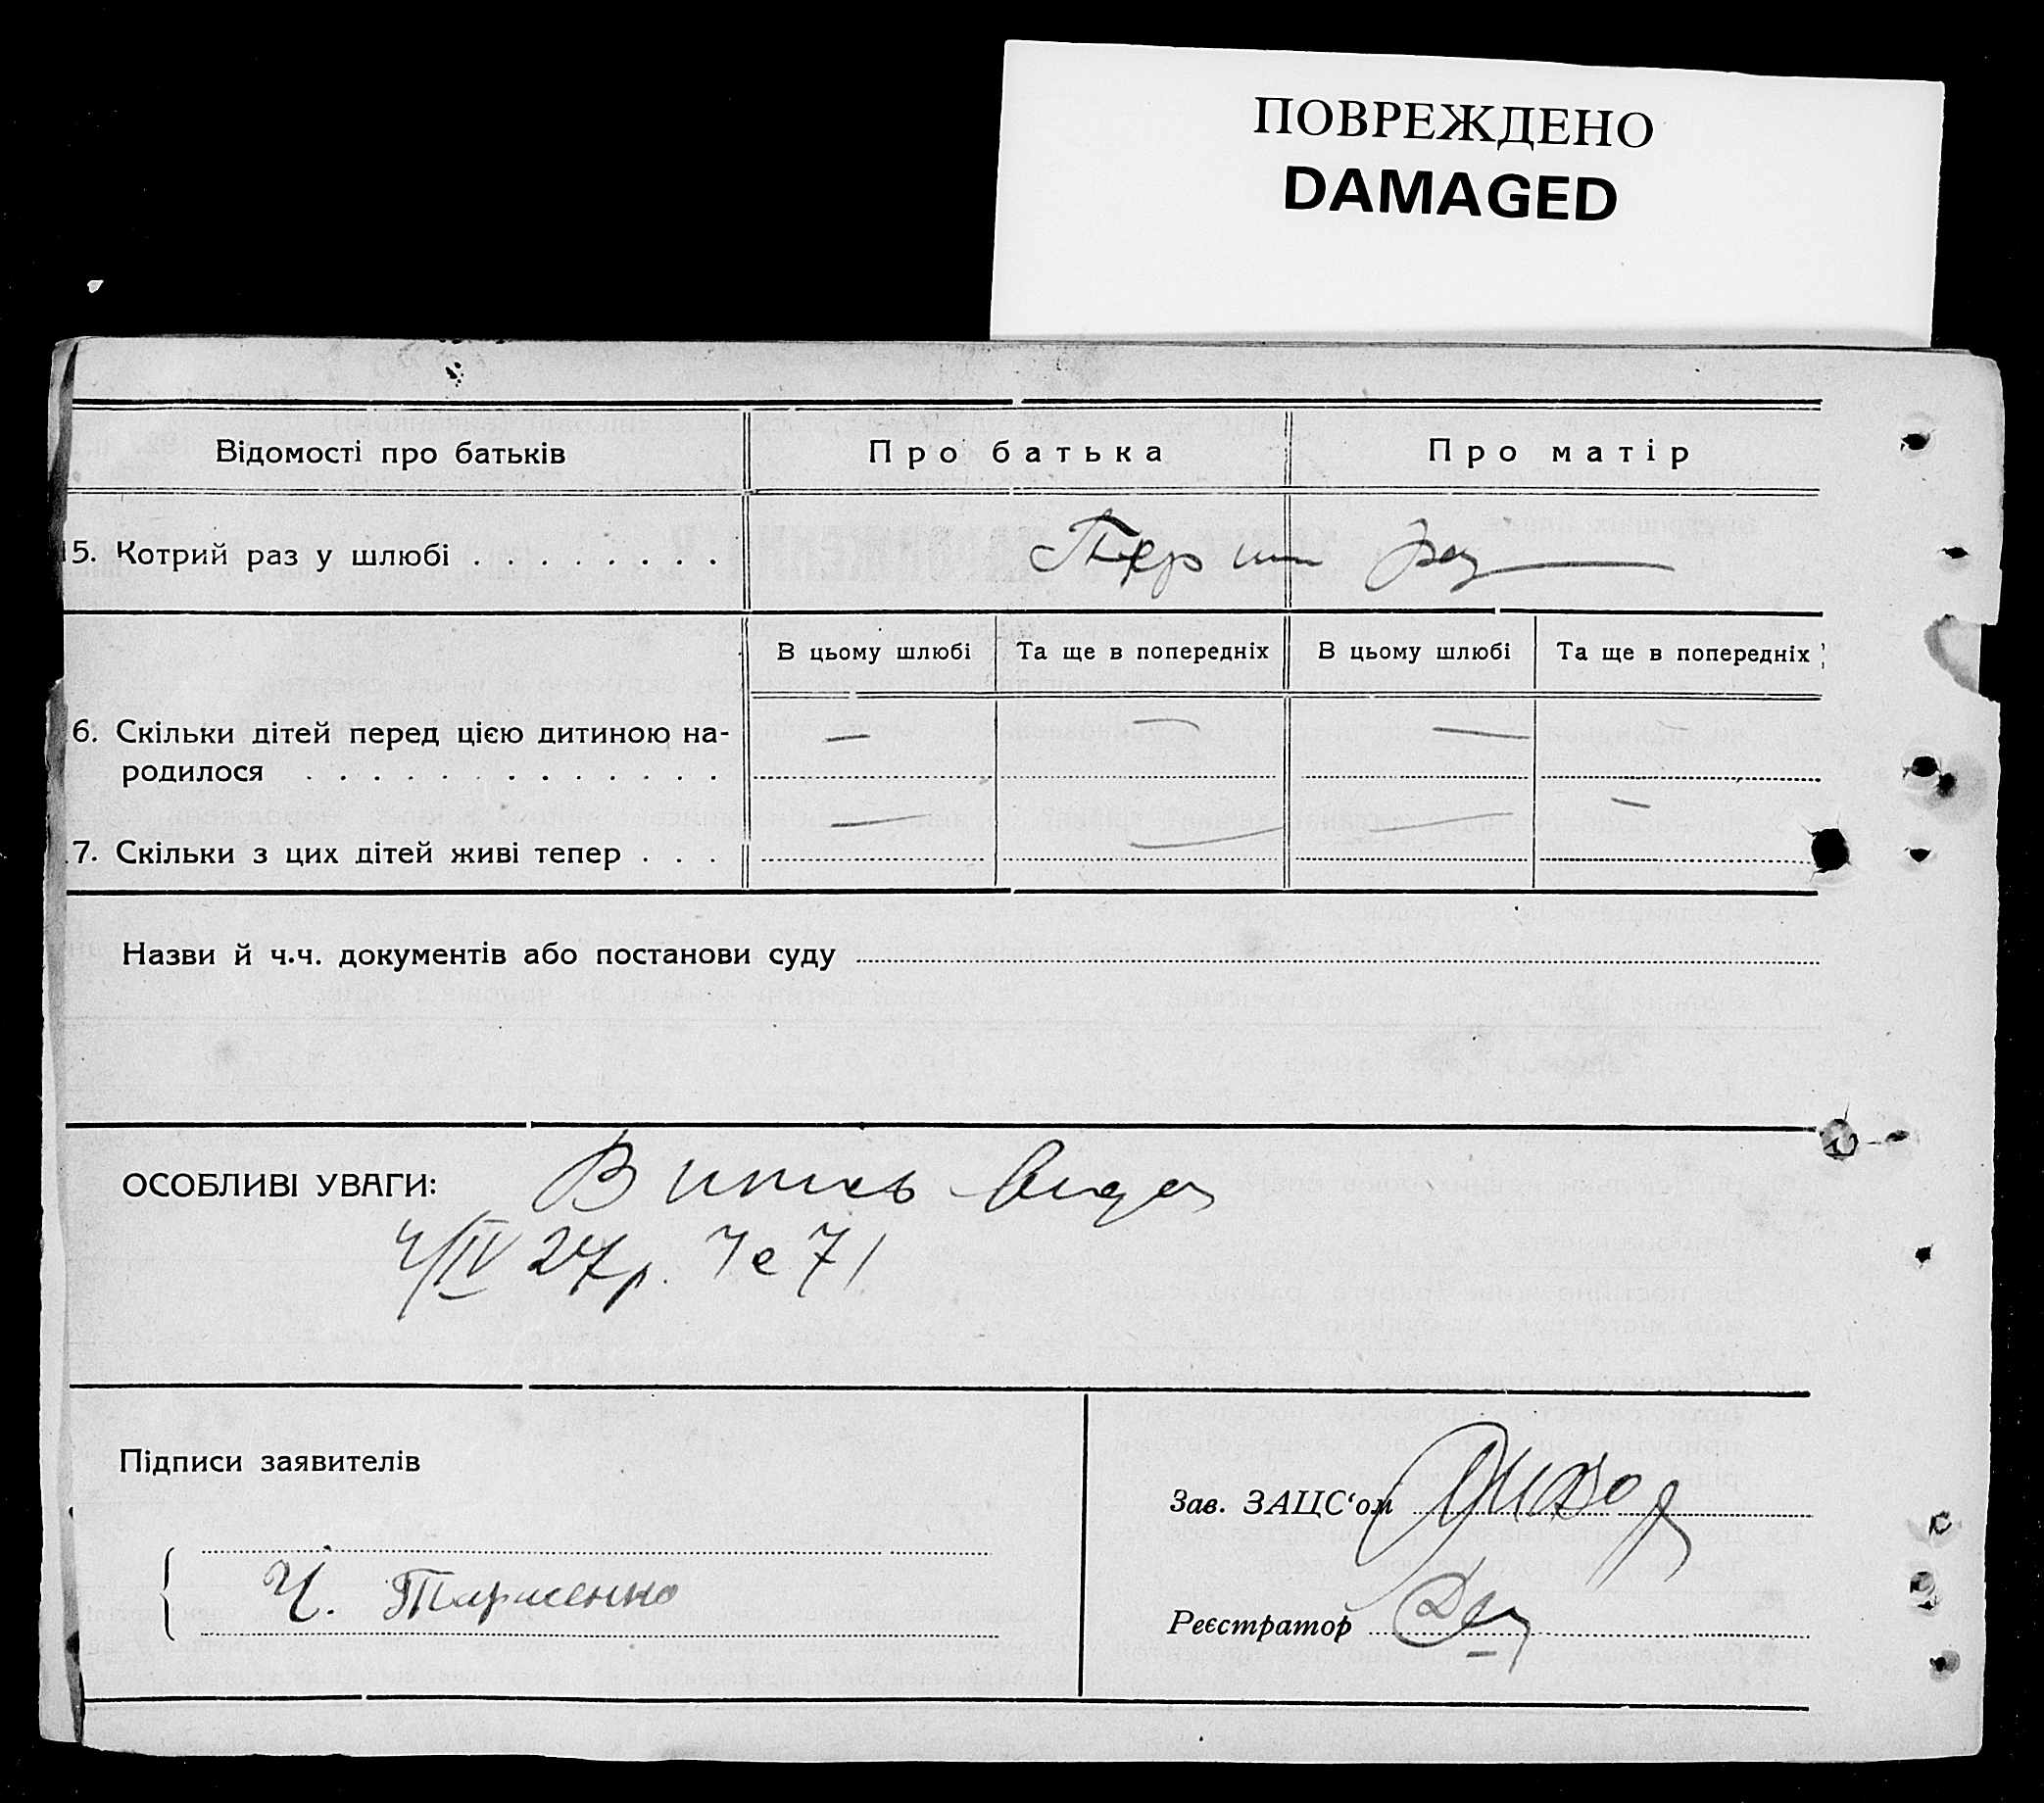 ПОВРЕЖДЕНО
DAMAGED
Відомості про батьків
Про батька
Про матір
15. Котрий раз у шлюбі . . . . . . . .
Перший раз
В цьому шлюбі
Та ще в попередніх
В цьому шлюбі
Та ще в попередніх
6. Скільки дітей перед цією дитиною на-
родилося . . . . . . . . . . . . .
7. Скільки з цих дітей живі тепер . . .
Назви й ч.ч. документів або постанови суду
ОСОБЛИВІ УВАГИ: Випись видан
4/IV 27р. Че 71
Підписи заявителів
Зав. ЗАЦС‘ом
Ч. Тарасенко
Реєстратор